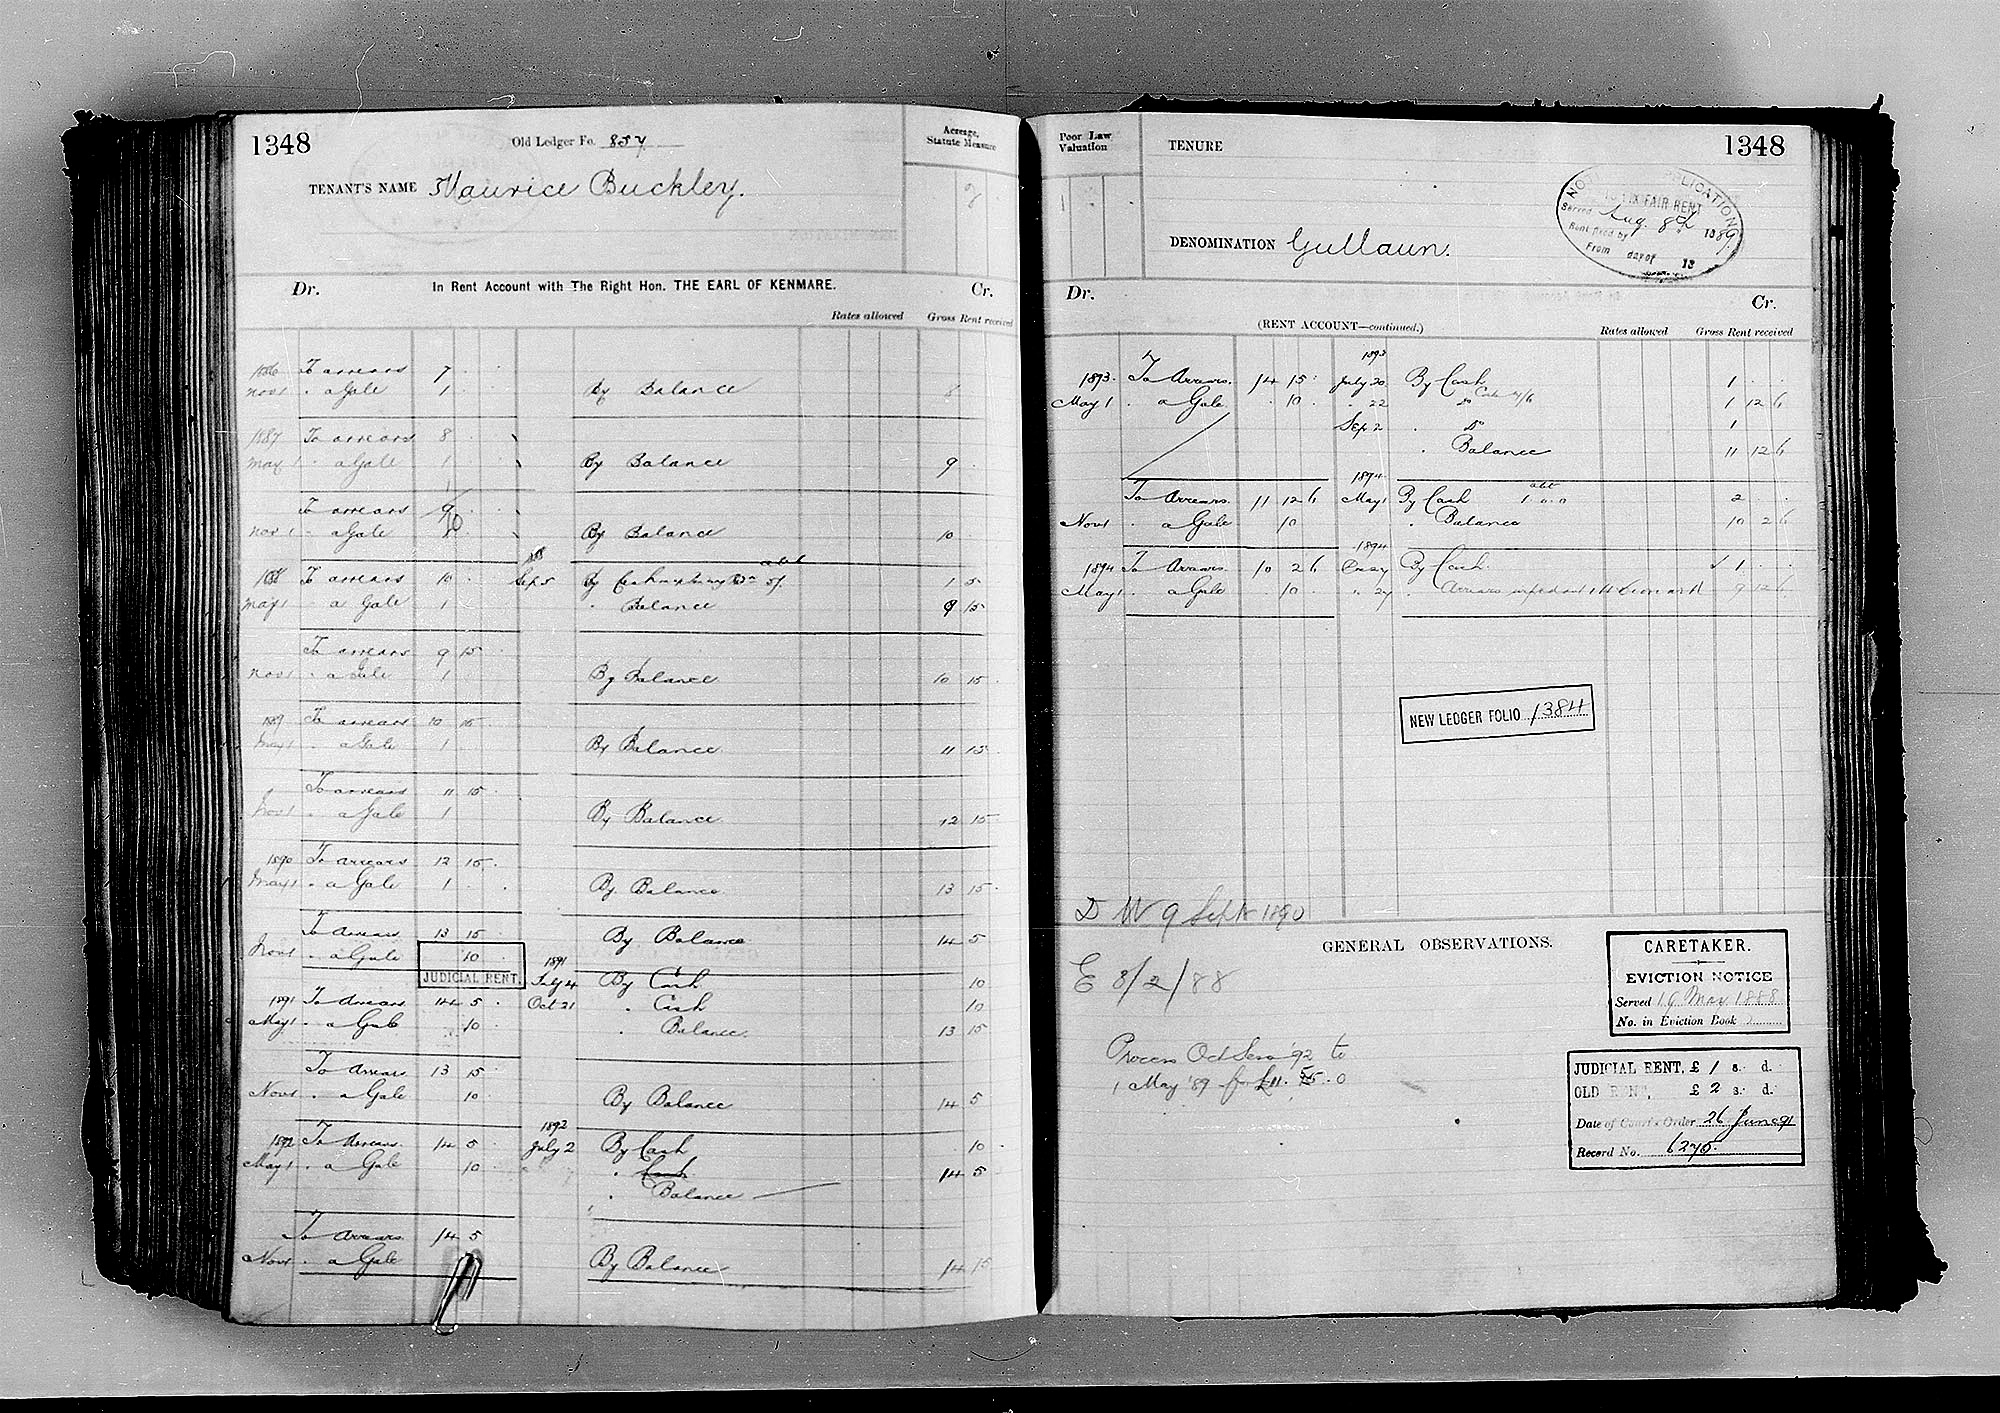 1348
Old Ledger Fo. 857
Acreage, Statute Measure
TENANT'S NAME Maurice Buckley.
Dr. In Rent Account with The Right Hon. THE EARL OF KENMARE. Cr.
Rates allowed Gross Rent received
1886 To arrears 7
Nov 1 " a Gale 1 By Balance 8
1887 To arrears 8
May 1 " a Gale 1 By Balance 9
To arrears 9
Nov 1 " a Gale By Balance 10
To arrears 10 Sep 5 By Cash 1 5
May 1 " a Gale 1 " Balance 9 15
To arrears 9 15
Nov 1 " a Gale 1 By Balance 10 15
1889 To arrears 10 15
May 1 " a Gale 1 By Balance 11 15
To arrears 11 15
Nov 1 " a Gale 1 By Balance 12 15
1890 To arrears 12 15
May 1 " a Gale 1 By Balance 13 15
To Arrears 13 15 By Balance 14 5
Nov 1 " a Gale 10
JUDICIAL RENT.
1891
July 4 By Cash 10
1891 To Arrears 14 5 Oct 21 " Cash 10
May 1 " a Gale 10 " Balance 13 15
To Arrears 13 15
Nov 1 " a Gale 10 By Balance 14 5
1892
1892 To Arrears 14 5 July 2 By Cash 10
May 1 " a Gale 10 " Cash 14 5
" Balance
To Arrears 14 5
Nov 1 " a Gale By Balance 14 15
Poor Law Valuation
TENURE
1348
1
NO PLICATION
FIX FAIR RENT
Served Aug. 8th 1889
Rent fixed by
From day of 18
DENOMINATION Gullaun.
Dr. Cr.
(RENT ACCOUNT—continued.) Rates allowed Gross Rent received
1893
1893 To Arrears 14 15 July 20 By Cash 1
May 1 " a Gale 10 " 22 " Do 1 12 6
Sep 2 " Do 1
" Balance 11 12 6
1894
To Arrears 11 12 6 May 1 By Cash abt 1.0.0 2
Nov 1 " a Gale 10 " Balance 10 2 6
1894
1894 To Arrears 10 2 6 May By Cash 1
May 1 " a Gale 10 " 27 " Arrears 9 12 6
NEW LEDGER FOLIO 1384
D W 9 Sept 1890
GENERAL OBSERVATIONS.
E 8/2/88
Process Oct Sess '92 to
1 May '89 for £11. 5. 0
CARETAKER.
EVICTION NOTICE
Served 19 Mar 1888
No. in Eviction Book
JUDICIAL RENT, £ 1 s. d.
OLD RENT, £ 2 s. d.
Date of Court's Order 26 June 91
Record No. 6275